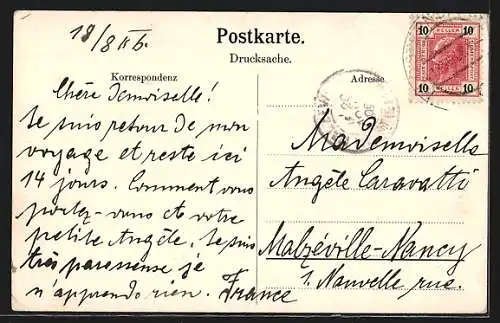 18/8
Postkarte.
Drucksache.
Korrespondenz
Adresse.
10 HELLER 10
10 10
Chère Demoiselle!
Je suis retour de mon
voyage et reste ici
14 jours. Comment vous
portez-vous et votre
petite Angèle. Je suis
très paressense je
n'apprends rien.
Mademoiselle
Angèle Caravatti
Malzéville-Nancy
1. Nauvelle rue.
France